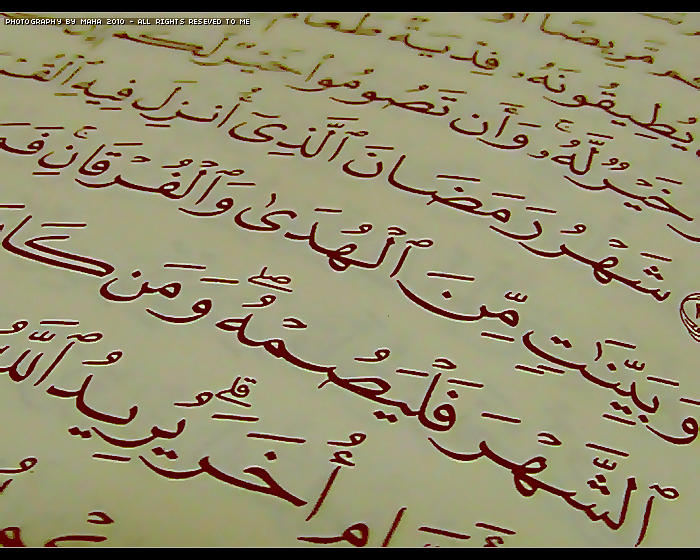 PHOTOGRAPHY BY MAHA 2010 - ALL RIGHTS RESEVED TO ME
مَّرِيضًا
يُطِيقُونَهُۥ فِدْيَةٌ طَعَامُ
خَيْرٌ لَّهُۥ وَأَن تَصُومُوا۟ خَيْرٌ لَّكُمْ
شَهْرُ رَمَضَانَ ٱلَّذِىٓ أُنزِلَ فِيهِ ٱلْقُرْ
وَبَيِّنَٰتٍ مِّنَ ٱلْهُدَىٰ وَٱلْفُرْقَانِ فَمَ
ٱلشَّهْرَ فَلْيَصُمْهُ ۖ وَمَن كَا
أُخَرَ ۗ يُرِيدُ ٱللَّهُ